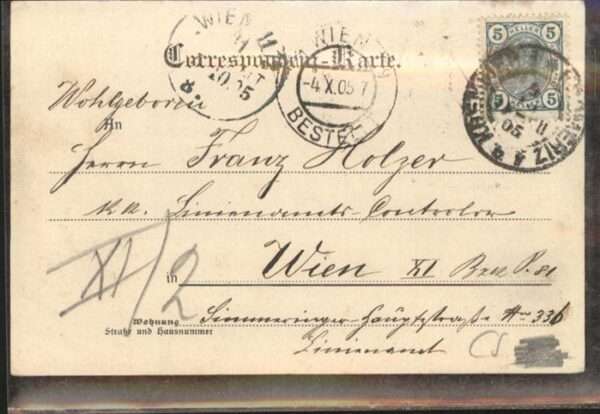 Correspondenz-Karte.
WIEN
11
10.05
WIEN
-4.X.05 7
BESTELLT
5 HELLER 5
5 5
05
Wohlgeboren
An
Herrn Franz Holzer
k.k. Linienamts-Controlor
in Wien XI
Wohnung Simmeringer-Hauptstraße No 336
Straße und Hausnummer
Linienamt
XI/2